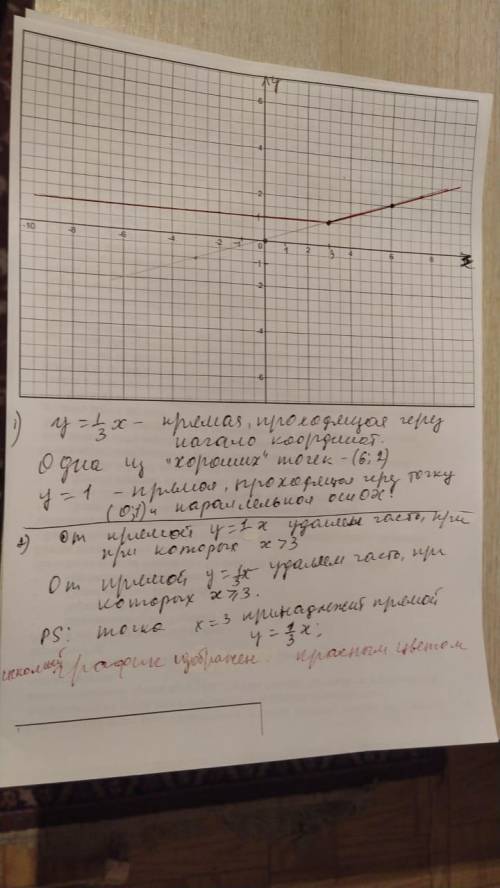 y
6
4
2
1
-10
-6
-2
-1
0
2
3
6
8
x
-1
-2
-4
-6
1) y = 1/3 x - прямая, проходящая через
начало координат.
Одна из "хороших" точек - (6; 2)
y = 1 - прямая, проходящая через точку
(0;1) и параллельная оси OX!
2) От прямой y = 1 x удаляем часть, при
при которых x > 3
От прямой y = 1/3 x удаляем часть, при
которых x ⩾ 3.
PS: точка x = 3 принадлежит прямой
y = 1/3 x;
график изображен красным цветом